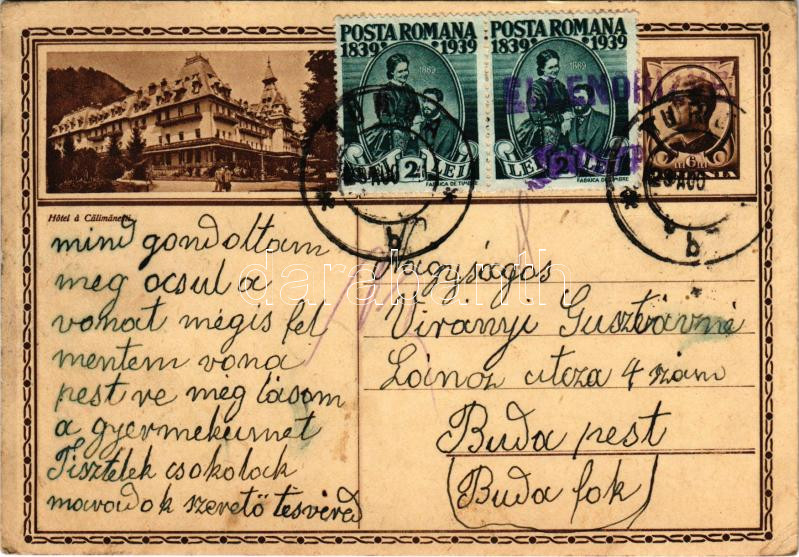 POSTA ROMANA POSTA ROMANA
1839 1939 1839 1939
1869 1869
ELLENŐRIZVE
2 LEI LEI 2 LEI
FABRICA DE TIMBRE FABRICA DE TIMBRE
6
AUG
b
AUG
b
Hôtel à Călimănești
mind gondoltam
meg ocsul a
vonat mégis fel
mentem vona
pest re meg lásom
a gyermekünet
Tisztelek csokolack
maraidok szerető tesvéred
Nagyságos
Virányi Gusztávné
Lánoz utcza 4 szám
Buda pest
(Buda fok)
darabanth